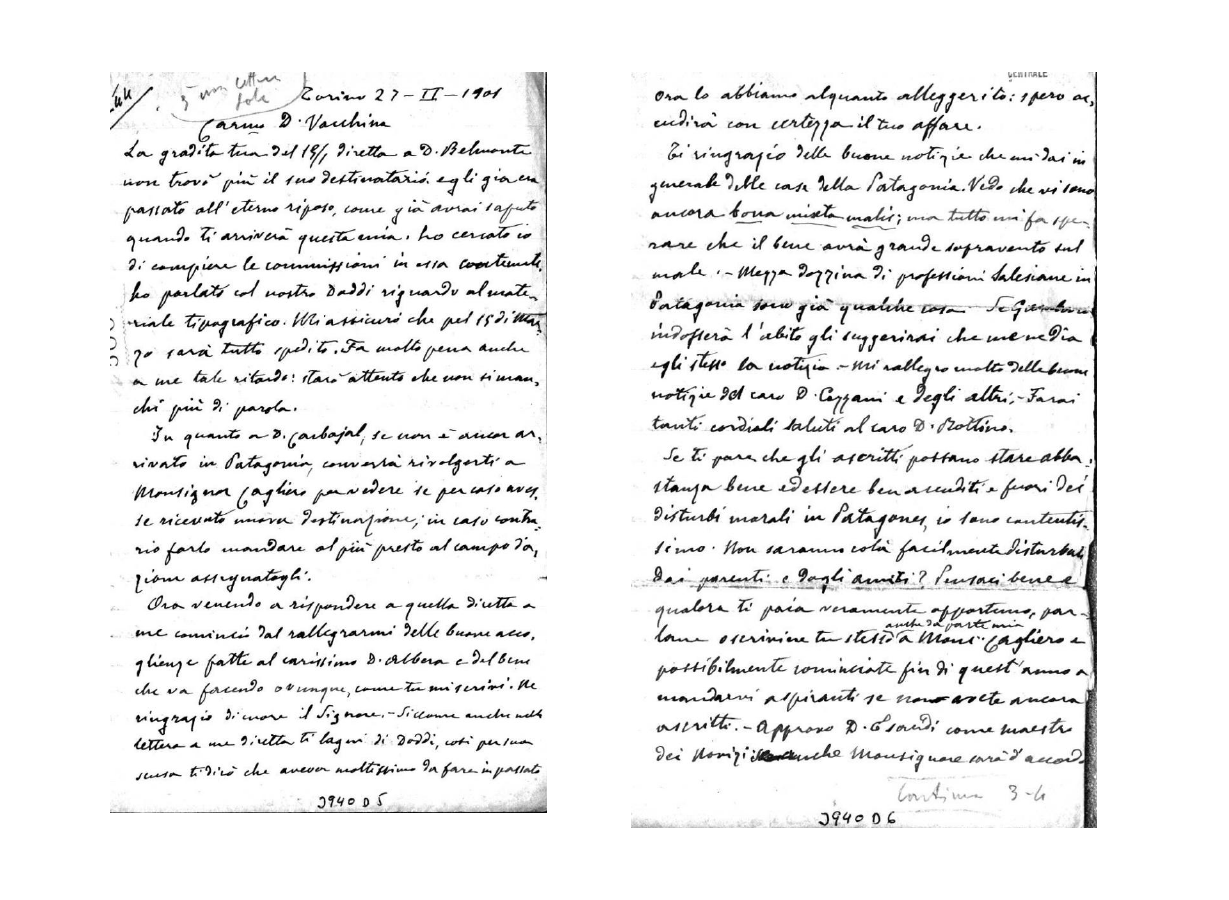 3 una lettera
sola
Torino 27-II-1901
Carmo D. Vacchina
La gradita tua del 15/1, diretta a D. Belmonte
non trovò più il suo destinatario. egli già era
passato all'eterno riposo, come già avrai saputo
quando ti arriverà questa mia. ho cercato io
di compiere le commissioni in essa contenute,
ho parlato col nostro Daddi riguardo al mate-
riale tipografico. Mi assicurò che pel 15 di Mar-
zo sarà tutto spedito. Fa molto pena anche
a me tale ritardo: starò attento che non si man-
chi più di parola.
In quanto a D. Carbajal, se non è ancor ar-
rivato in Patagonia, converrà rivolgerti a
Monsignor Cagliero per vedere se per caso aves-
se ricevuto nuova destinazione; in caso contra-
rio farlo mandare al più presto al campo d'a-
zione assegnatogli.
Ora venendo a rispondere a quella diretta a
me comincio dal rallegrarmi delle buone acco-
glienze fatte al carissimo D. Albera e del bene
che va facendo ovunque, come tu mi scrivi. Ne
ringrazio di cuore il Signore. - Siccome anche nella
lettera a me diretta ti lagni di Daddi, così per sua
scusa ti dirò che avevor moltissimo da fare in passato
J940 D5
CENTRALE
Ora lo abbiamo alquanto alleggerito: spero ac-
cudirà con certezza il tuo affare.
Ti ringrazio delle buone notizie che mi dai in
generale delle case della Patagonia. Vedo che vi sono
ancora bona mixta malis; ma tutto mi fa spe-
rare che il bene avrà grande sopravento sul
male. - Mezza dozzina di professioni Salesiane in
Patagonia sono già qualche cosa. Se
indosserà l'abito gli suggerirai che me ne dia
egli stesso la notizia. - Mi rallegro molto delle buone
notizie del caro D. Cozzani e degli altri. - Farai
tanti cordiali saluti al caro D. Bottino.
Se ti pare che gli ascritti possano stare abba-
stanza bene ed essere ben accuditi e fuori dei
disturbi morali in Patagones, io sono contentis-
simo. Non saranno colà facilmente disturbati
dai parenti e dagli amici? Pensaci bene e
qualora ti paia veramente opportuno, par-
anche da parte mia
lane o scrivine tu stesso a Mons. Cagliero e
possibilmente cominciate fin di quest'anno a
mandarvi aspiranti se non avete ancora
ascritti. - Approvo D. Esandi come maestro
dei Novizi anche Monsignore sarà d'accordo
Continua 3-4
J940 D6